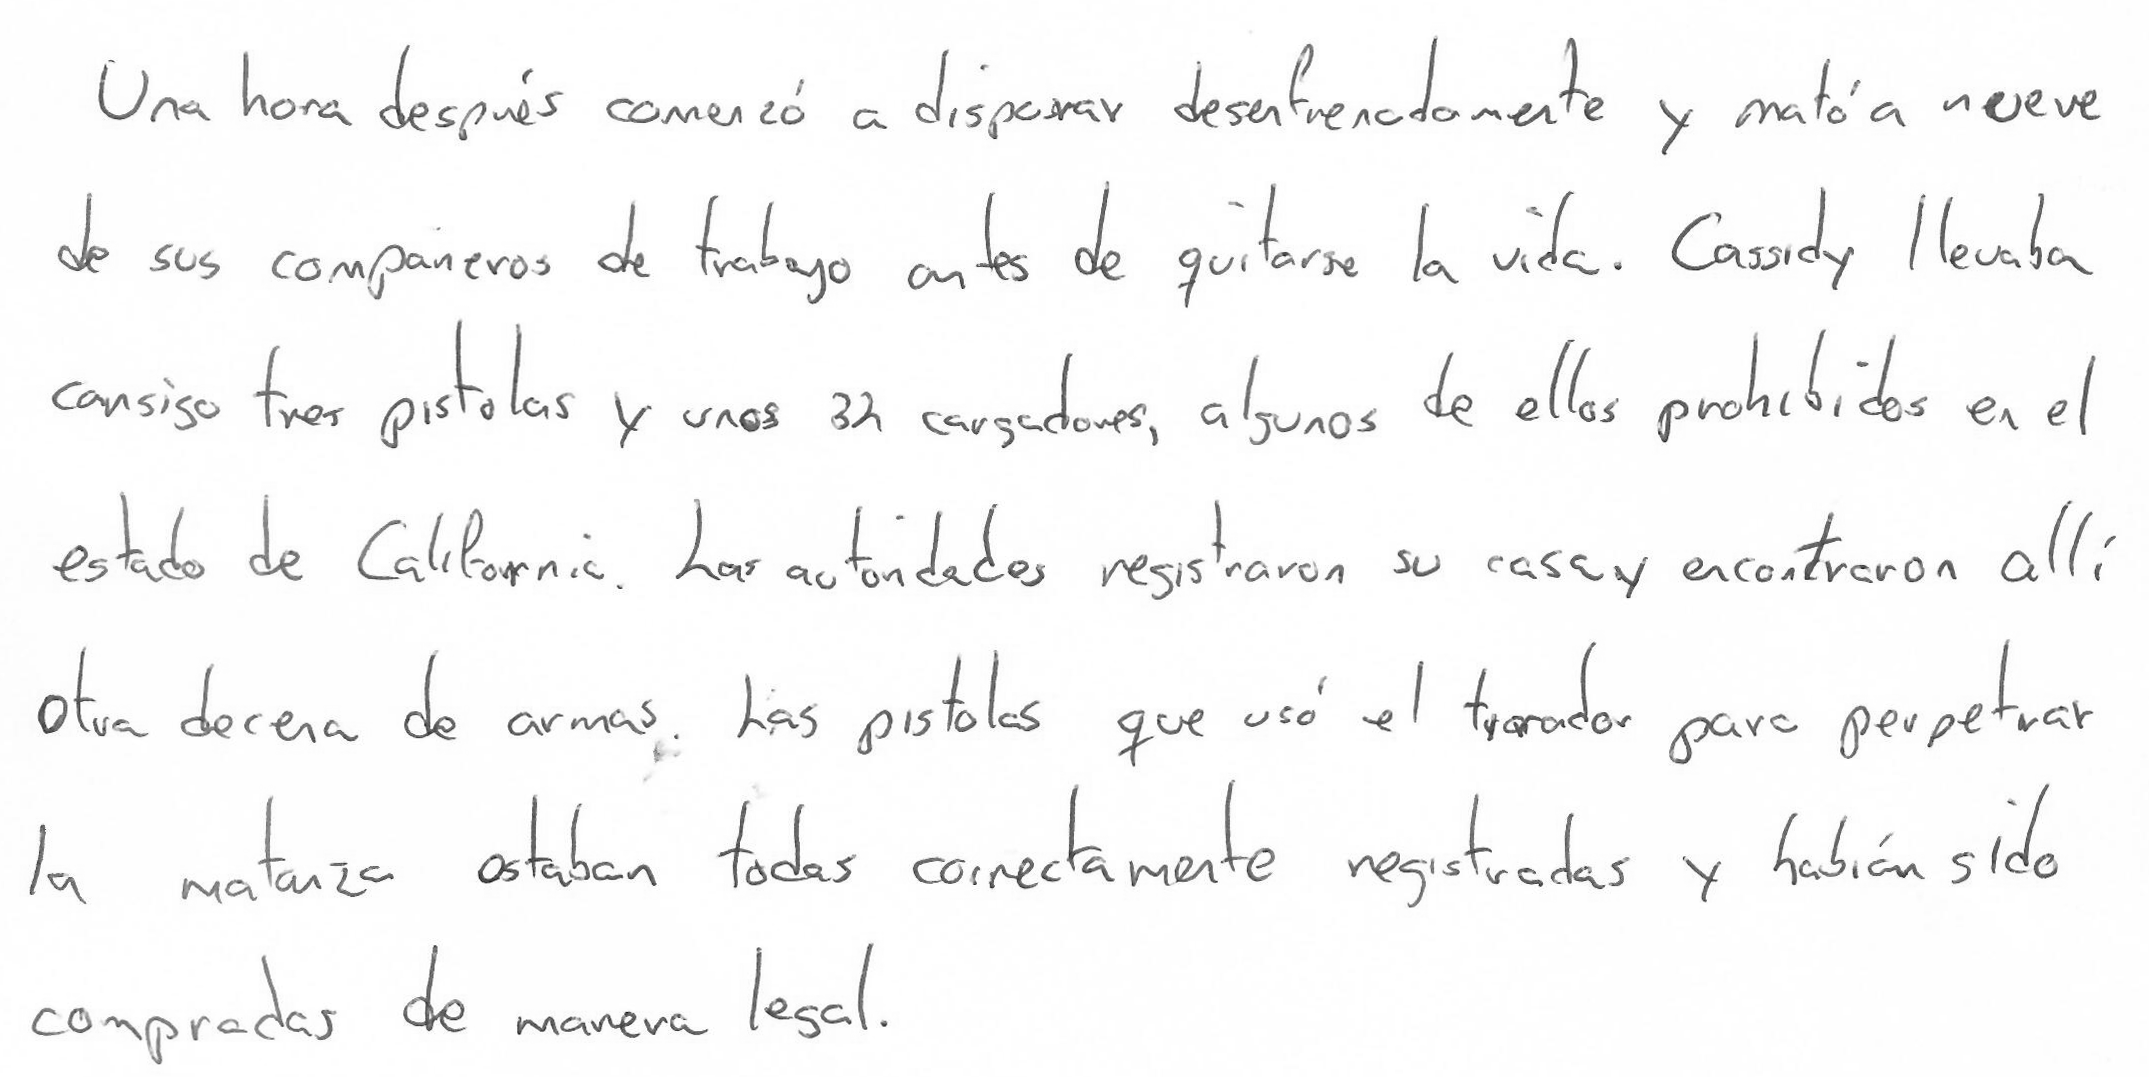 Una hora después comenzó a disparar desenfrenadamente y mató a nueve
de sus compañeros de trabajo antes de quitarse la vida. Cassidy llevaba
consigo tres pistolas y unos 32 cargadores, algunos de ellos prohibidos en el
estado de California. Las autoridades registraron su casa y encontraron allí
otra decena de armas. Las pistolas que usó el tirador para perpetrar
la matanza estaban todas correctamente registradas y habían sido
compradas de manera legal.